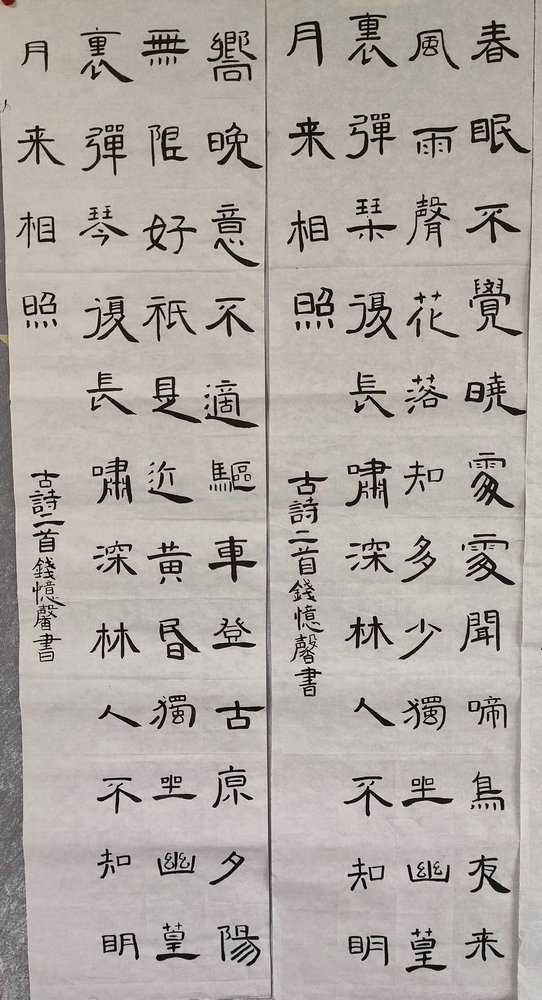 春眠不覺曉處處聞啼鳥夜来
風雨聲花落知多少獨坐幽篁
裏彈琹復長嘯深林人不知明
月来相照 古詩二首錢憶馨書
嚮晚意不適驅車登古原夕陽
無限好祇是近黃昏獨坐幽篁
裏彈琴復長嘯深林人不知明
月来相照 古詩二首錢憶馨書